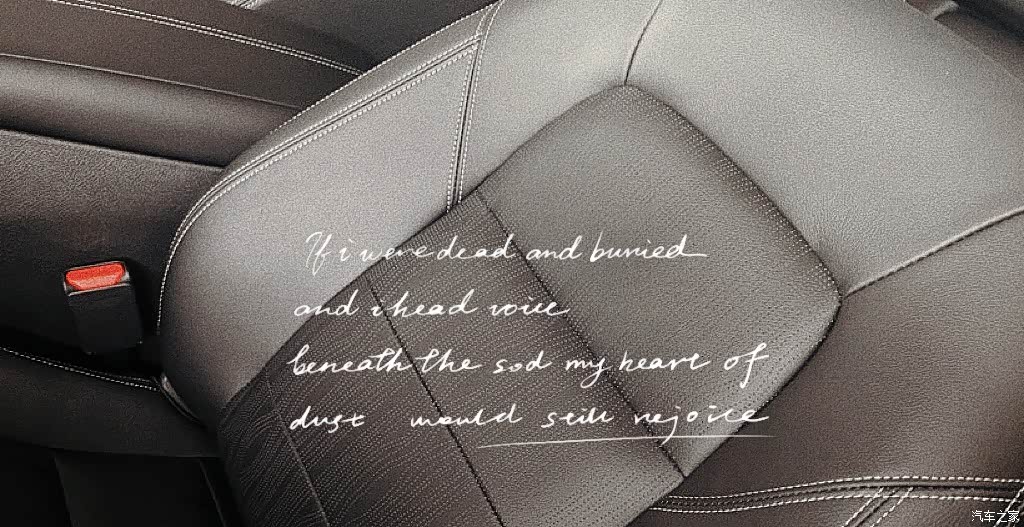 If i were dead and buried
and i head voice
beneath the sod my heart of
dust would still rejoice
汽车之家